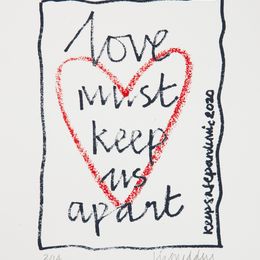 love
must
keep
us
apart
keepsafepandemic2020